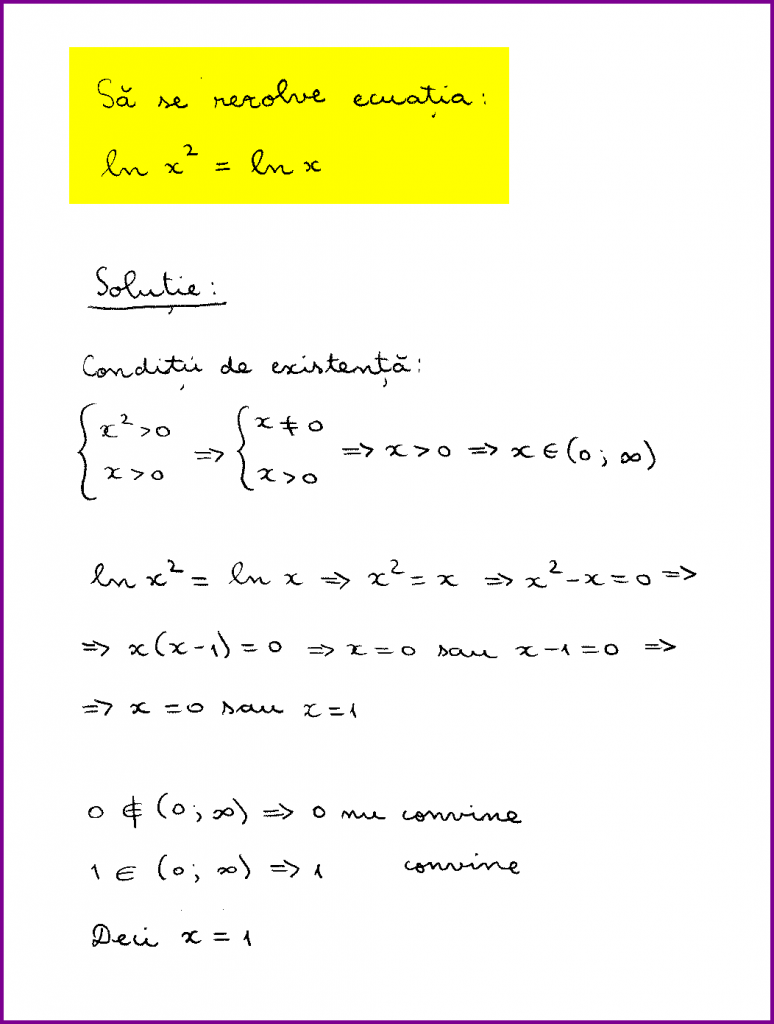 Să se rezolve ecuația:
ln x² = ln x
Soluție:
Condiții de existență:
{x² > 0 x > 0 => {x ≠ 0 x > 0 => x > 0 => x ∈ (0; ∞)
ln x² = ln x => x² = x => x² - x = 0 =>
=> x(x-1) = 0 => x = 0 sau x - 1 = 0 =>
=> x = 0 sau x = 1
0 ∉ (0; ∞) => 0 nu convine
1 ∈ (0; ∞) => 1 convine
Deci x = 1